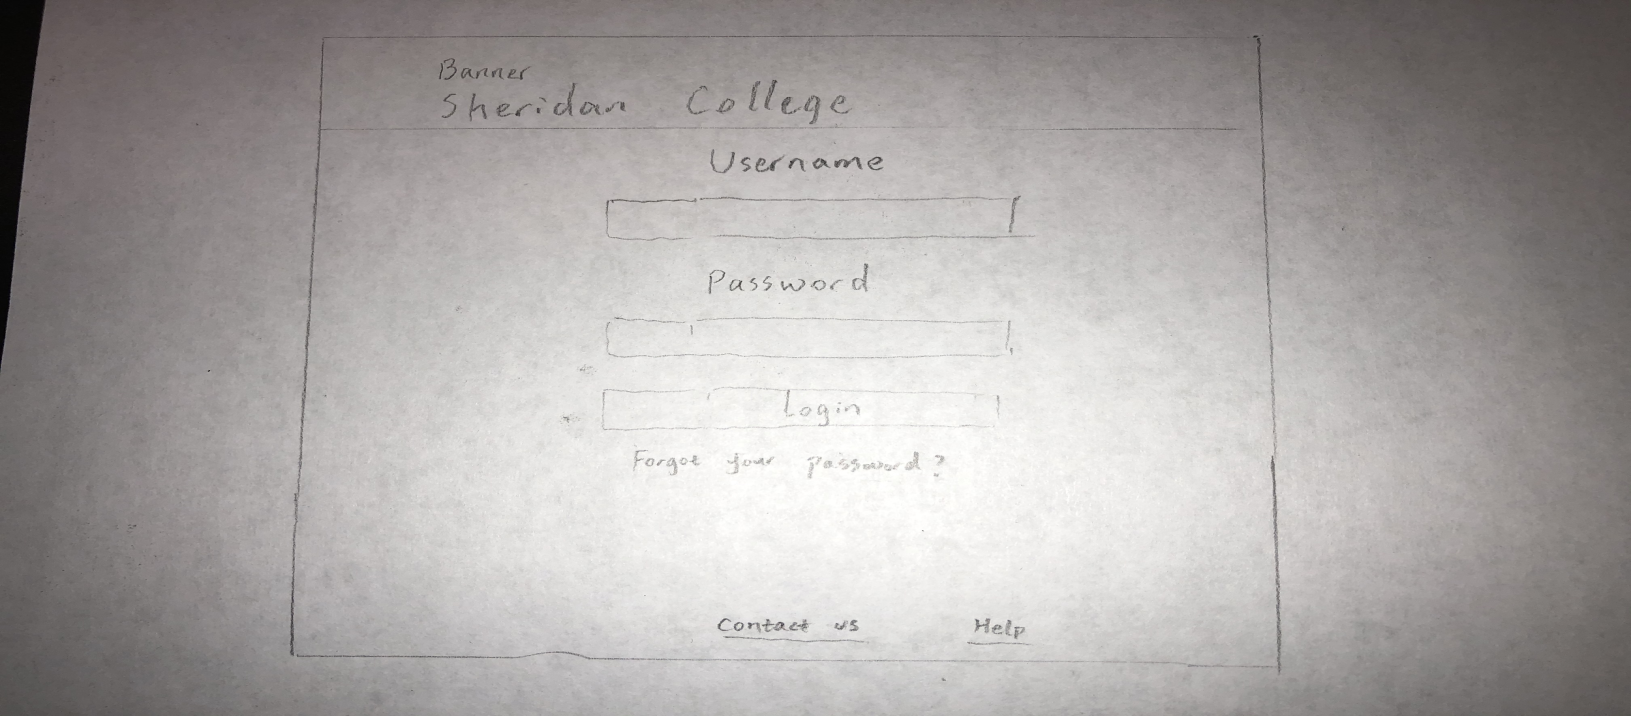 Banner
Sheridan College
Username
Password
Login
Forgot your password?
Contact us Help